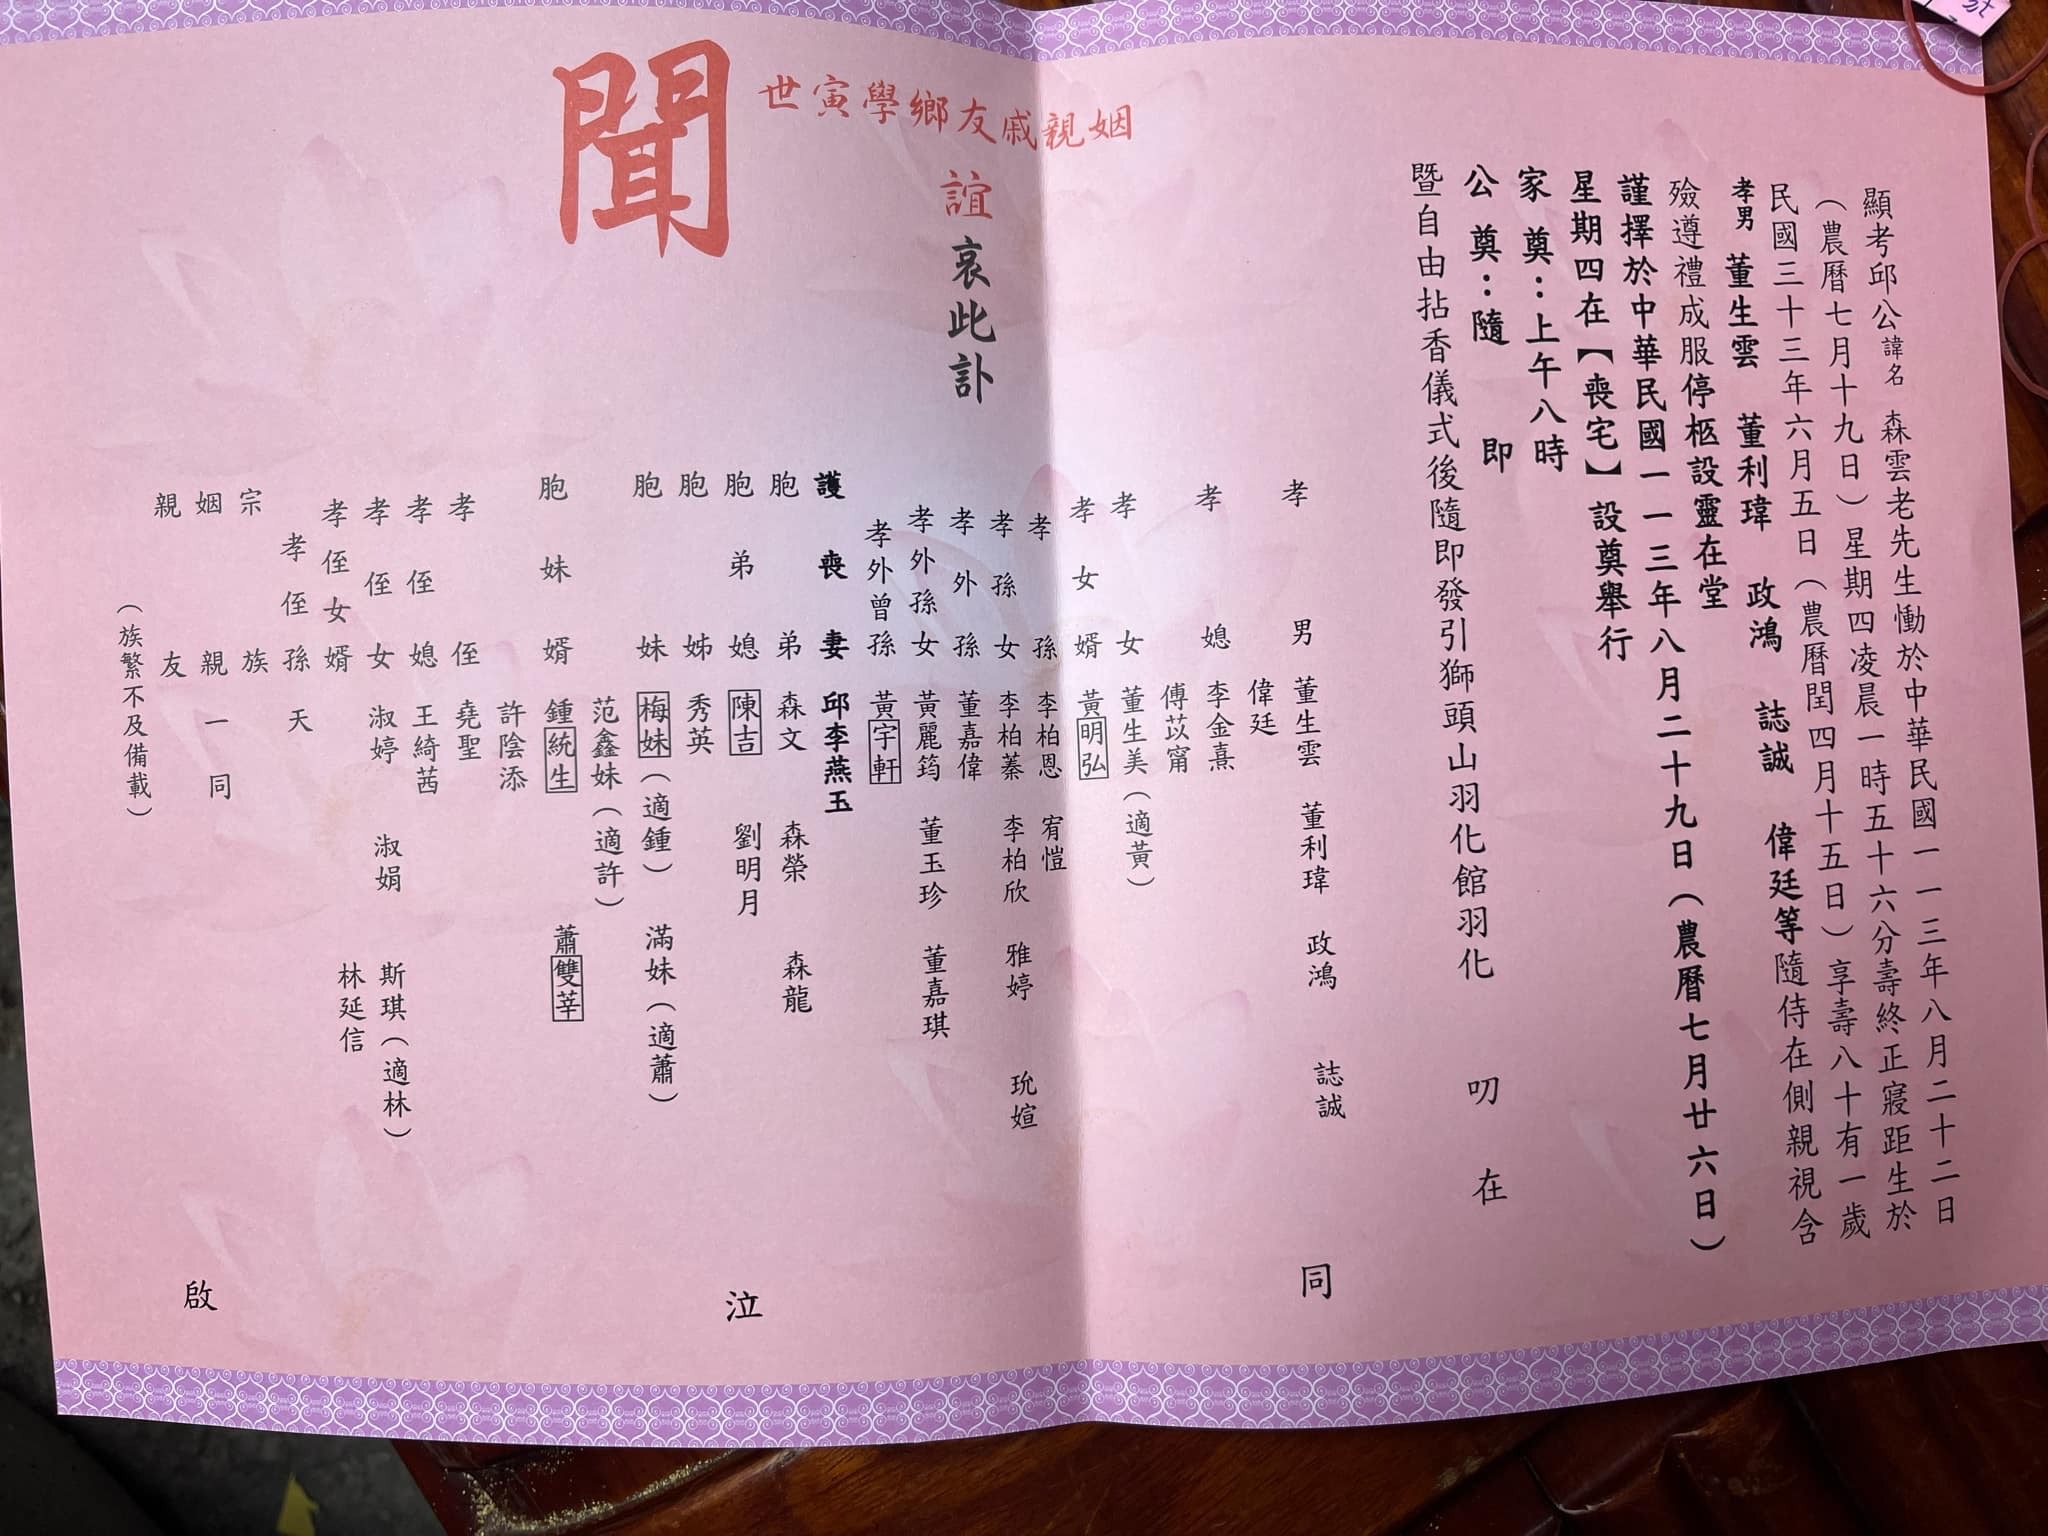 顯考邱公諱名森雲老先生慟於中華民國一一三年八月二十二日
（農曆七月十九日）星期四凌晨一時五十六分壽終正寢距生於
民國三十三年六月五日（農曆閏四月十五日）享壽八十有一歲
孝男 董生雲 董利瑋 政鴻 誌誠 偉廷等隨侍在側親視含
殮遵禮成服停柩設靈在堂
謹擇於中華民國一一三年八月二十九日（農曆七月廿六日）
星期四在【喪宅】設奠舉行
家奠：上午八時
公奠：隨即
暨自由拈香儀式後隨即發引獅頭山羽化館羽化 叨在
姻親戚友鄉學寅世
誼哀此訃
聞
孝男 董生雲 董利瑋 政鴻 誌誠 同
偉廷
孝媳 李金熹
傅苡甯
孝女 董生美（適黃）
孝女婿 黃明弘
孝孫 李柏恩 宥愷
孝孫女 李柏蓁 李柏欣 雅婷 玧媗
孝外孫 董嘉偉
孝外孫女 黃麗筠 董玉珍 董嘉琪
孝外曾孫 黃宇軒
護喪妻 邱李燕玉
胞弟 森文 森榮 森龍
胞弟媳 陳吉 劉明月 泣
胞姊 秀英
胞妹 梅妹（適鍾） 滿妹（適蕭）
范鑫妹（適許）
胞妹婿 鍾統生 蕭雙莘
許陰添
孝侄 堯聖
孝侄媳 王綺茜
孝侄女 淑婷 淑娟 斯琪（適林）
孝侄女婿 林延信
孝侄孫 天
宗族
姻親一同
親友 啟
（族繁不及備載）